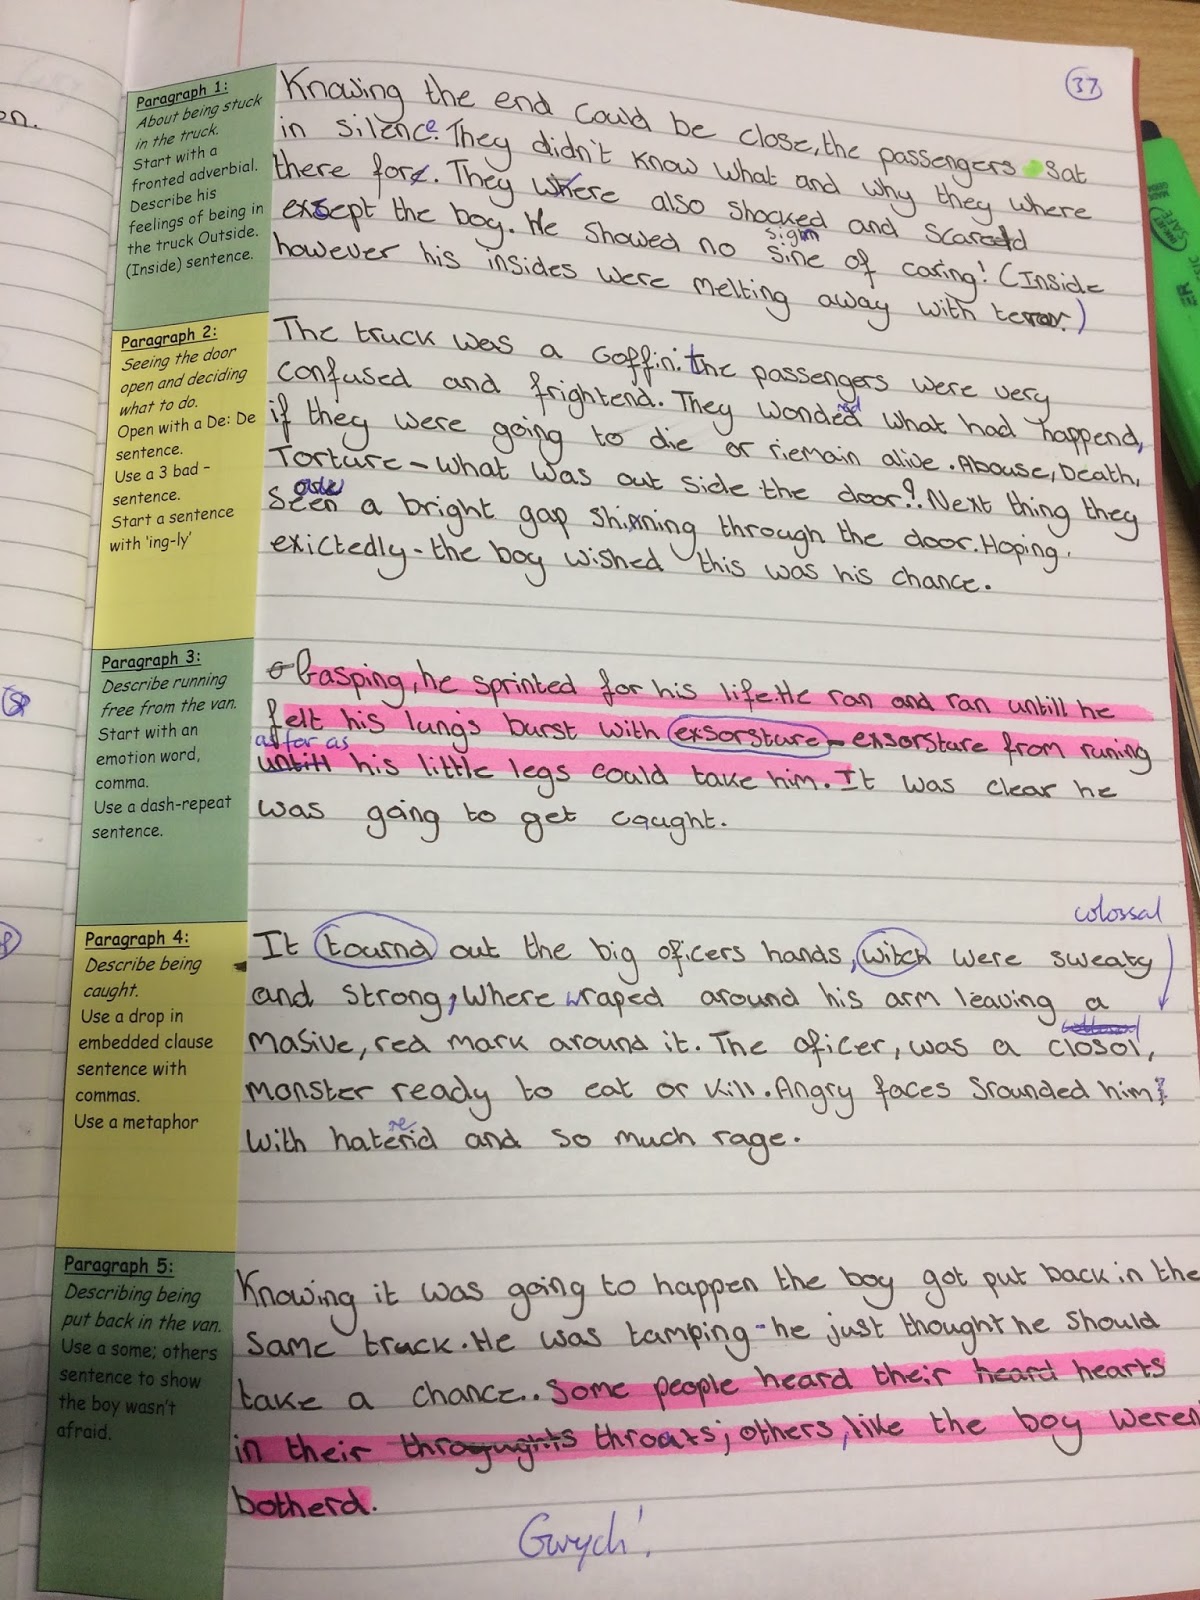 on.
37
Paragraph 1:
About being stuck
in the truck.
Start with a
fronted adverbial.
Describe his
feelings of being in
the truck Outside.
(Inside) sentence.
Knowing the end could be close, the passengers sat
in silence. They didn't know what and why they where
there for. They where also shocked and scared
exsept the boy. He showed no sine of caring! (Inside
sign
however his insides were melting away with terror.)
Paragraph 2:
Seeing the door
open and deciding
what to do.
Open with a De: De
sentence.
Use a 3 bad -
sentence.
Start a sentence
with 'ing-ly'
The truck was a Coffin: the passengers were very
confused and frightend. They wonded what had happend,
red
if they were going to die or riemain alive. Abuse, Death,
Torture - what was out side the door?! Next thing they
seen a bright gap shinning through the door. Hoping
exictedly - the boy wished this was his chance.
Paragraph 3:
Describe running
free from the van.
Start with an
emotion word,
comma.
Use a dash-repeat
sentence.
Gasping, he sprinted for his life. He ran and ran untill he
felt his lungs burst with exsorsture - exsorsture from runing
as far as
untill his little legs could take him. It was clear he
was going to get caught.
Paragraph 4:
Describe being
caught.
Use a drop in
embedded clause
sentence with
commas.
Use a metaphor
colossal
It tournd out the big oficers hands, witch were sweaty
and strong, where wraped around his arm leaving a
masive, red mark around it. The oficer, was a closol,
monster ready to eat or kill. Angry faces srounded him
re
with haterid and so much rage.
Paragraph 5:
Describing being
put back in the van.
Use a some; others
sentence to show
the boy wasn't
afraid.
Knowing it was going to happen the boy got put back in the
same truck. He was tamping - he just thought he should
take a chance.. Some people heard their heard hearts
in their throughts throats; others, like the boy weren
botherd.
Gwych!